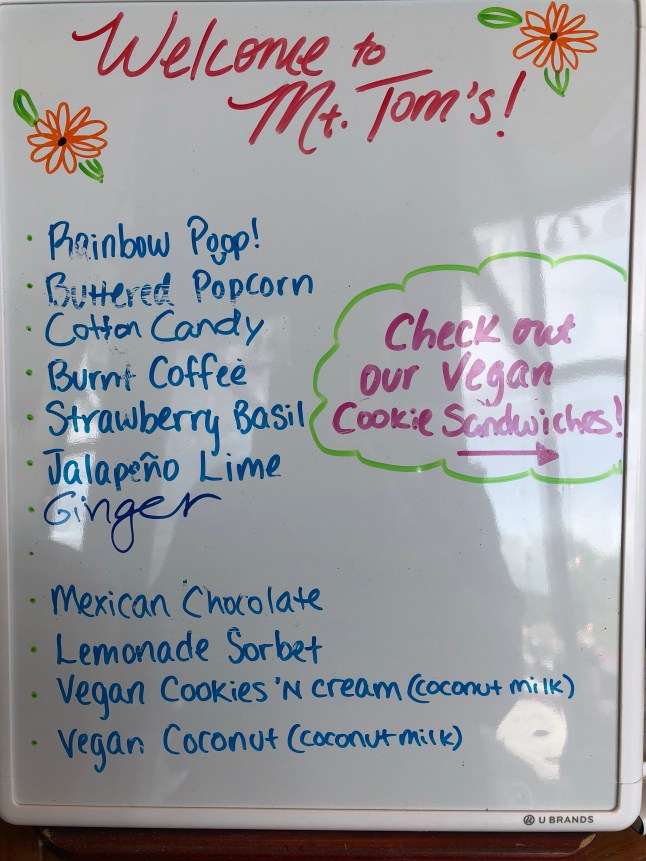 Welcome to
Mt. Tom's!
Rainbow Poop!
Buttered Popcorn
Cotton Candy
Burnt Coffee
Strawberry Basil
Jalapeño Lime
Ginger
Check out
our Vegan
Cookie Sandwiches!
Mexican Chocolate
Lemonade Sorbet
Vegan Cookies 'N cream (coconut milk)
Vegan Coconut (coconut milk)
U BRANDS